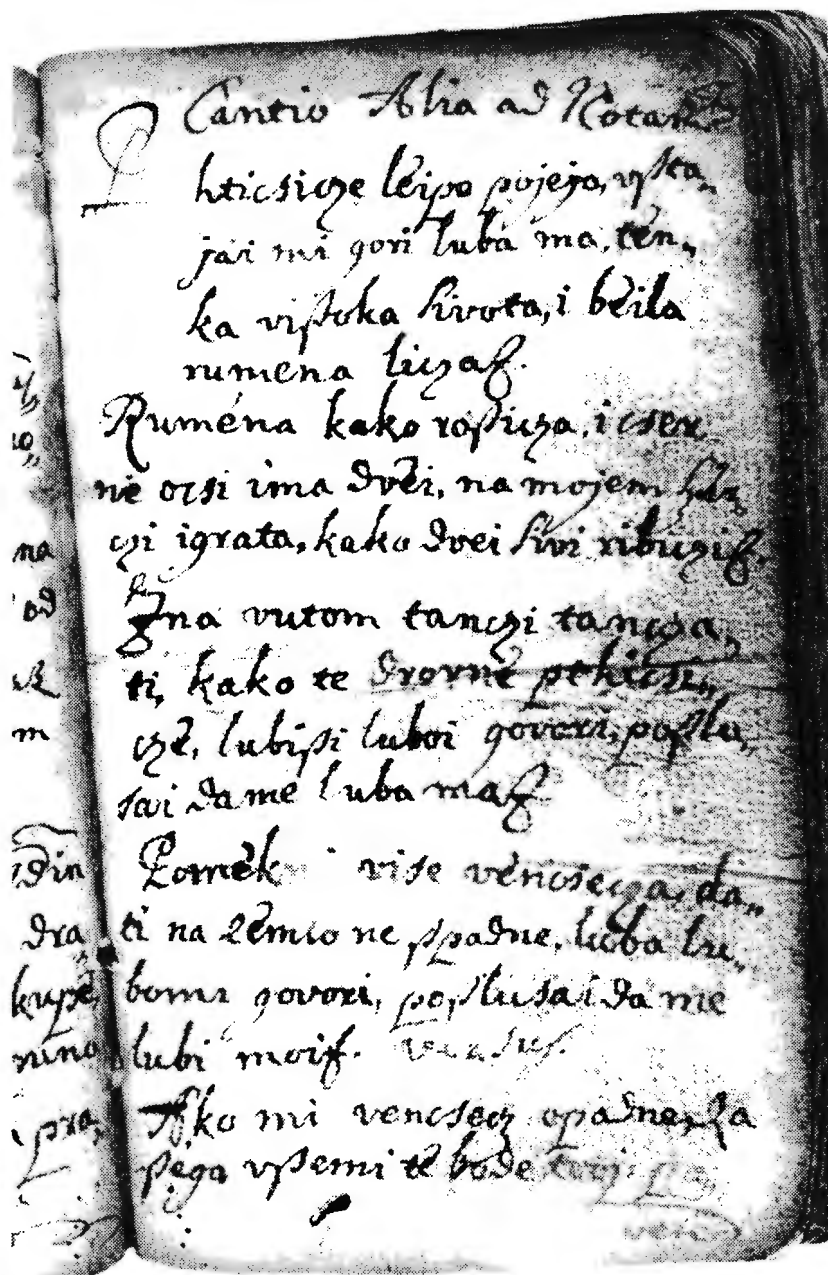 Cantio Alia ad Notam
Phticsicze leipo pojejo, vßta„
jai mi gori luba ma, ten„
ka vißoka sivota, i beila
rumena licza
Rumena kako roßicza, i cser
ne ocsi ima dvei, na mojem
czi igrata, kako dvei sivi ribiczi
Zna vutom tanczi tancza„
ti, kako te drovne pthicsi„
cze, lubißi luboi govori, poßlu„
sai da me luba ma
Pomekni vise vencsecza, da„
ti na zemlo ne ßpadne, luba lu„
bomi govori, poßlusai da me
lubi moi. versus.
Ako mi vencsecz opadne, za
ßega vßemi te bode tvoj
na
od
m
din
dra„
kupe„
nino
pra„